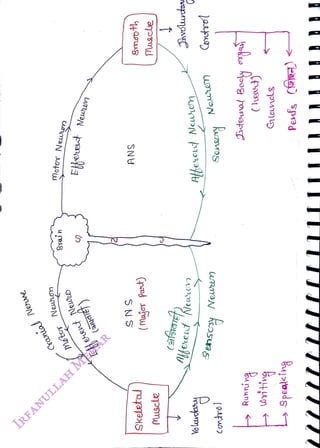 IRFANULLAH
Cranial Nerve
Motor Neuron
Efferent Neuron
Motor Neuron
Efferent Neuron
Brain
Skeletal
Muscle
SNS
(Major Part)
ANS
Smooth
Muscle
Afferent Neuron
Sensory Neuron
Afferent Neuron
Sensory Neuron
Voluntary
Control
Involuntary
Control
Running
Writing
Speaking
Internal Body organ
(heart)
Glands
Penis